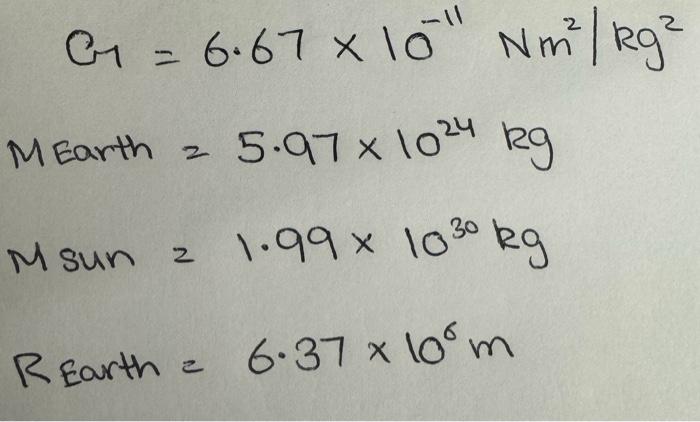 G = 6.67 × 10⁻¹¹ Nm²/kg²
M Earth = 5.97 × 10²⁴ kg
M sun = 1.99 × 10³⁰ kg
R Earth = 6.37 × 10⁶ m